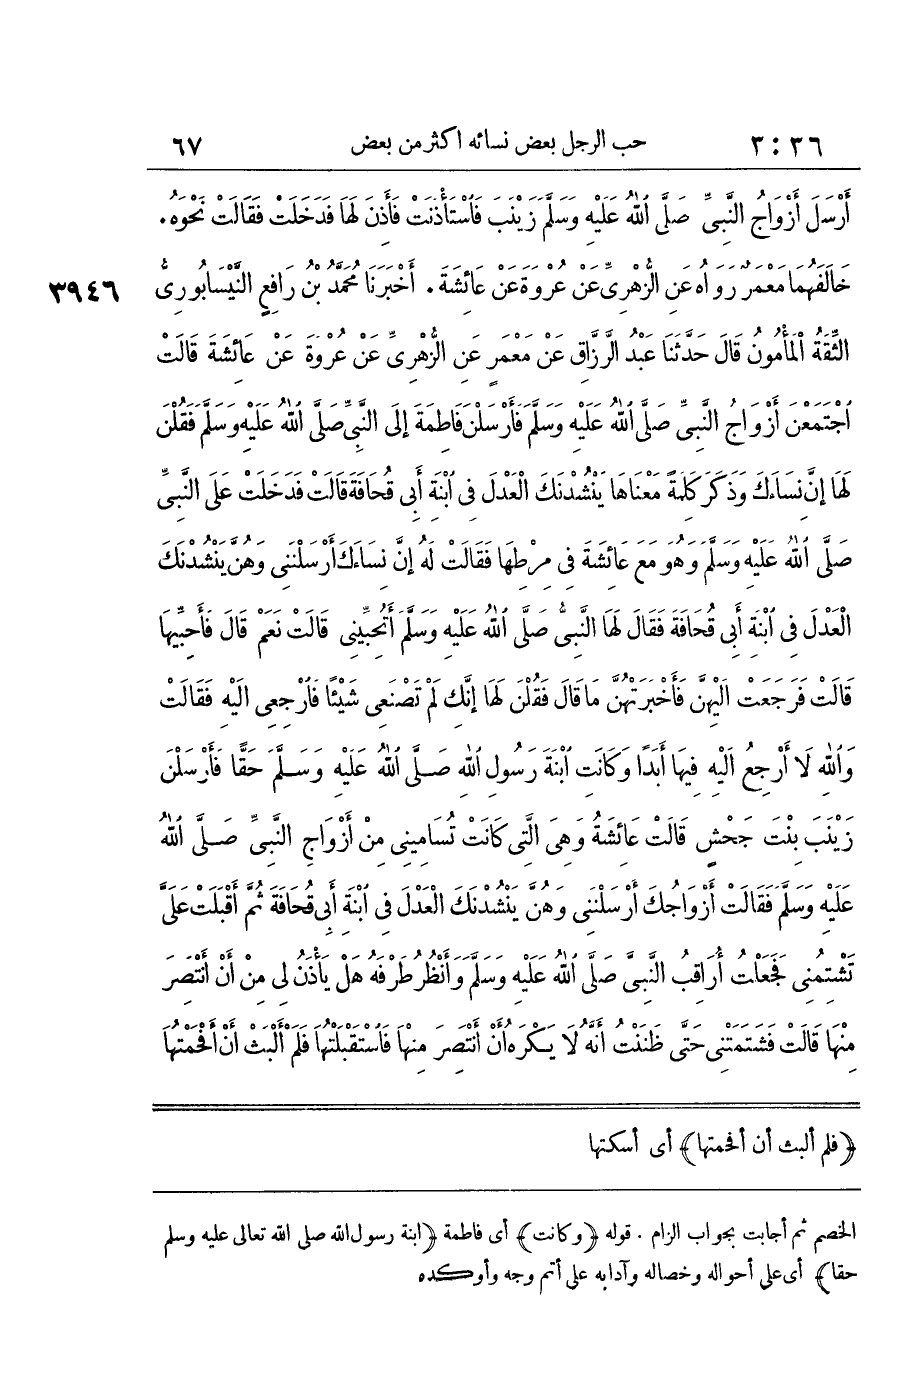 ٣ : ٣٦ حب الرجل بعض نسائه اكثر من بعض ٦٧
أَرْسَلَ أَزْوَاجُ النَّبِيِّ صَلَّى اللهُ عَلَيْهِ وَسَلَّمَ زَيْنَبَ فَاسْتَأْذَنَتْ فَأَذِنَ لَهَا فَدَخَلَتْ فَقَالَتْ نَحْوَهُ .
٣٩٤٦ خَالَفَهُمَا مَعْمَرٌ رَوَاهُ عَنِ الزُّهْرِىِّ عَنْ عُرْوَةَ عَنْ عَائِشَةَ . أَخْبَرَنَا مُحَمَّدُ بْنُ رَافِعٍ النَّيْسَابُورِىُّ
الثِّقَةُ الْمَأْمُونُ قَالَ حَدَّثَنَا عَبْدُ الرَّزَّاقِ عَنْ مَعْمَرٍ عَنِ الزُّهْرِىِّ عَنْ عُرْوَةَ عَنْ عَائِشَةَ قَالَتْ
اجْتَمَعْنَ أَزْوَاجُ النَّبِىِّ صَلَّى اللهُ عَلَيْهِ وَسَلَّمَ فَأَرْسَلْنَ فَاطِمَةَ إِلَى النَّبِىِّ صَلَّى اللهُ عَلَيْهِ وَسَلَّمَ فَقُلْنَ
لَهَا إِنَّ نِسَاءَكَ وَذَكَرَ كَلِمَةً مَعْنَاهَا يَنْشُدْنَكَ الْعَدْلَ فِى ابْنَةِ أَبِى قُحَافَةَ قَالَتْ فَدَخَلَتْ عَلَى النَّبِىِّ
صَلَّى اللهُ عَلَيْهِ وَسَلَّمَ وَهُوَ مَعَ عَائِشَةَ فِى مِرْطِهَا فَقَالَتْ لَهُ إِنَّ نِسَاءَكَ أَرْسَلْنَنِى وَهُنَّ يَنْشُدْنَكَ
الْعَدْلَ فِى ابْنَةِ أَبِى قُحَافَةَ فَقَالَ لَهَا النَّبِىُّ صَلَّى اللهُ عَلَيْهِ وَسَلَّمَ أَتُحِبِّينِى قَالَتْ نَعَمْ قَالَ فَأَحِبِّيهَا
قَالَتْ فَرَجَعَتْ الَيْهِنَّ فَأَخْبَرَتْهُنَّ مَا قَالَ فَقُلْنَ لَهَا إِنَّكِ لَمْ تَصْنَعِى شَيْئًا فَارْجِعِى الَيْهِ فَقَالَتْ
وَاللهِ لَا أَرْجِعُ الَيْهِ فِيهَا أَبَدًا وَكَانَتِ ابْنَةَ رَسُولِ اللهِ صَلَّى اللهُ عَلَيْهِ وَسَلَّمَ حَقًّا فَأَرْسَلْنَ
زَيْنَبَ بِنْتَ جَحْشٍ قَالَتْ عَائِشَةُ وَهِىَ الَّتِى كَانَتْ تُسَامِينِى مِنْ أَزْوَاجِ النَّبِىِّ صَلَّى اللهُ
عَلَيْهِ وَسَلَّمَ فَقَالَتْ أَزْوَاجُكَ أَرْسَلْنَنِى وَهُنَّ يَنْشُدْنَكَ الْعَدْلَ فِى ابْنَةِ أَبِى قُحَافَةَ ثُمَّ أَقْبَلَتْ عَلَىَّ
تَشْتِمُنِى فَجَعَلْتُ أُرَاقِبُ النَّبِىَّ صَلَّى اللهُ عَلَيْهِ وَسَلَّمَ وَأَنْظُرُ طَرْفَهُ هَلْ يَأْذَنُ لِى مِنْ أَنْ أَنْتَصِرَ
مِنْهَا قَالَتْ فَشَتَمَتْنِى حَتَّى ظَنَنْتُ أَنَّهُ لَا يَكْرَهُ أَنْ أَنْتَصِرَ مِنْهَا فَاسْتَقْبَلْتُهَا فَلَمْ أَلْبَثْ أَنْ أَفْحَمْتُهَا
﴿فلم ألبث أن أفحمتها﴾ أى أسكتها
الخصم ثم أجابت بجواب الزام . قوله ﴿وكانت﴾ أى فاطمة ﴿ابنة رسول الله صلى الله تعالى عليه وسلم
حقا﴾ أى على أحواله وخصاله وآدابه على أتم وجه وأوكده